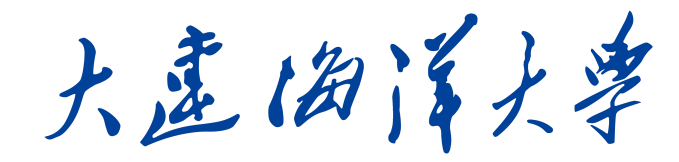 大連海洋大学